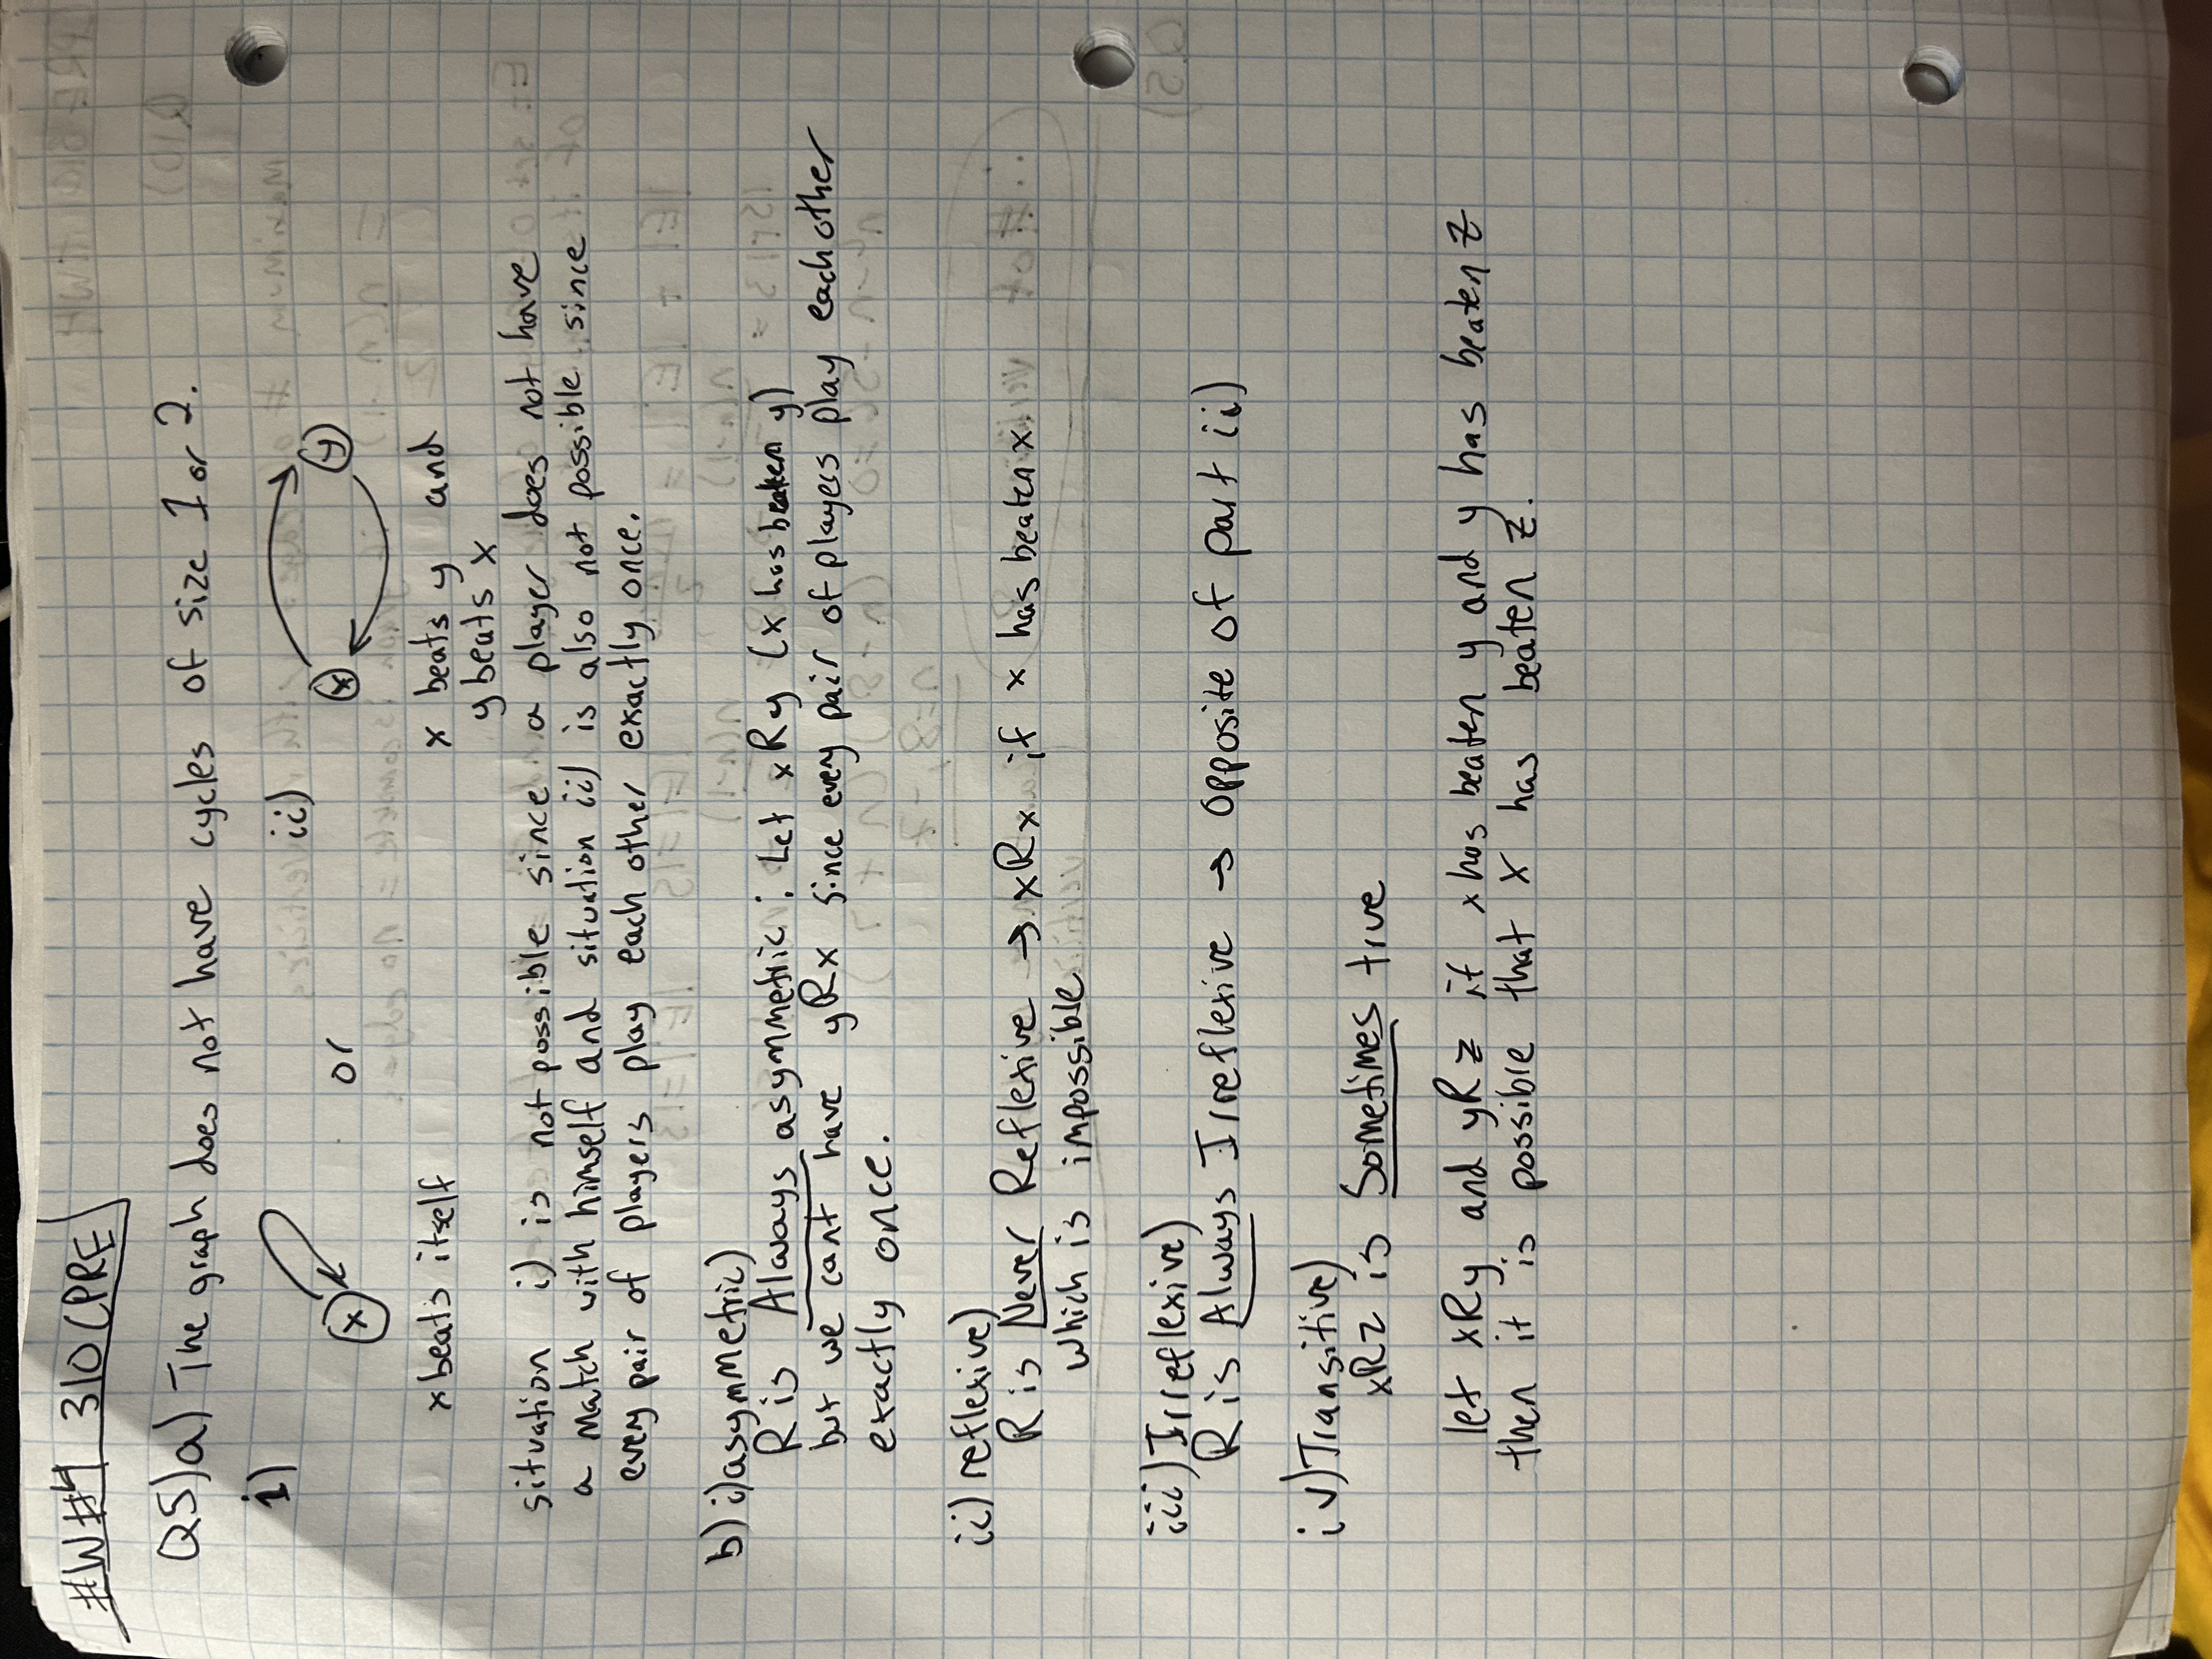 #W#4 310 (PRE
Q5)a) The graph does not have cycles of size 1 or 2.
i)
ii)
x
or
x
y
x beats itself
x beats y and
y beats x
situation i) is not possible since a player does not have
a match with himself and situation ii) is also not possible since
every pair of players play each other exactly once.
b) i) asymmetric)
R is Always asymmetric: Let xRy (x has beaten y)
but we cant have yRx since every pair of players play each other
exactly once.
ii) reflexive)
R is Never Reflexive → xRx if x has beaten x.
which is impossible
iii) Irreflexive)
R is Always Irreflexive → opposite of part ii)
iv) Transitive)
xRz is Sometimes true
let xRy and yRz if x has beaten y and y has beaten z
then it is possible that x has beaten z.